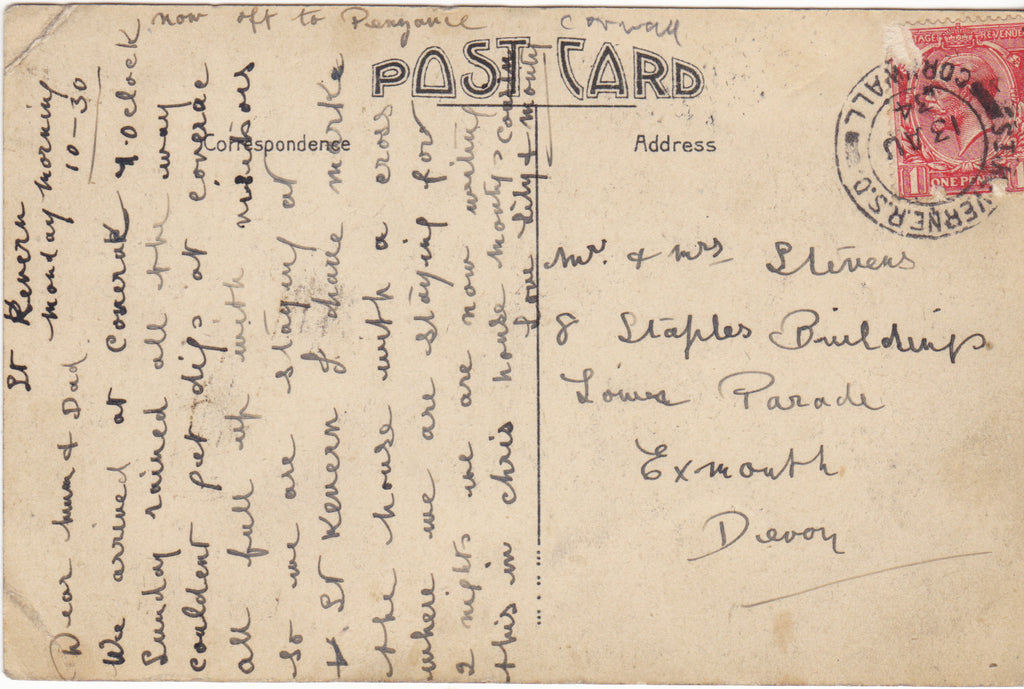 now off to Penzance
Cornwall
POST CARD
Correspondence
Address
St Kevern
monday morning
10-30
Dear mum & Dad.
We arrived at Coverak 4.0clock
Sunday rained all the way
couldent get digs at coverac
all full up with visitors
so we are staying at
St Kevern I have marke
the house with a cross
where we are staying for
2 nights we are now writing
this in chris house monty
Love Lily & monty
Mr. & Mrs Stevens
8 Staples Buildings
Lower Parade
Exmouth
Devon
POSTAGE REVENUE
1 ONE PENNY 1
ST. KEVERNE R.S.O. CORNWALL
13 AU
34